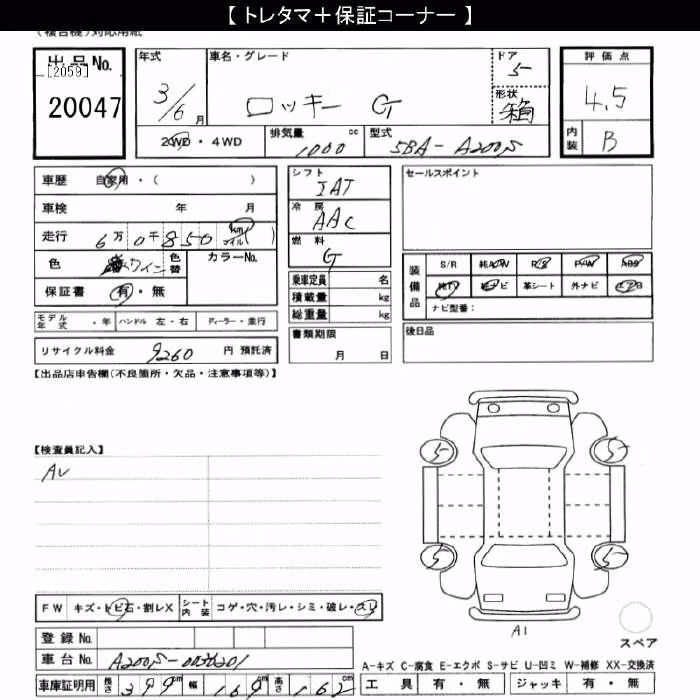 【 トレタマ＋保証コーナー 】
(複合機)対応用紙
出品No.
[2059]
20047
年式
3/6 月
車名・グレード
ロッキー G
ドア
5
形状
箱
評価点
4.5
内装
B
2WD・4WD
排気量 1000 cc
型式 5BA-A200S
車歴 自家用・( )
車検 年 月
走行 6万0千850 km マイル )
色 ワイン 色替
カラーNo.
保証書 有・無
シフト
IAT
冷房
AAC
燃料
G
乗車定員 名
積載量 kg
総重量 kg
セールスポイント
装備品
S/R 純AW R/S P/W ABS
純TV 純ナビ 革シート 外ナビ エアB
ナビ型番：
モデル年式 ・年 ハンドル 左・右 ディーラー・並行
書類期限
月 日
後日品
リサイクル料金 9260 円 預託済
【出品店申告欄(不良箇所・欠品・注意事項等)】
【検査員記入】
AV
5 5
5 5
A1
スペア
FW キズ・トビ石・割レX シート内装 コゲ・穴・汚レ・シミ・破レ・スレ
登録No.
車台No. A200S-0030201
A-キズ C-腐食 E-エクボ S-サビ U-凹ミ W-補修 XX-交換済
車庫証明用 長さ 399 cm 幅 169 cm 高さ 162 cm
工具 有・無 ジャッキ 有・無